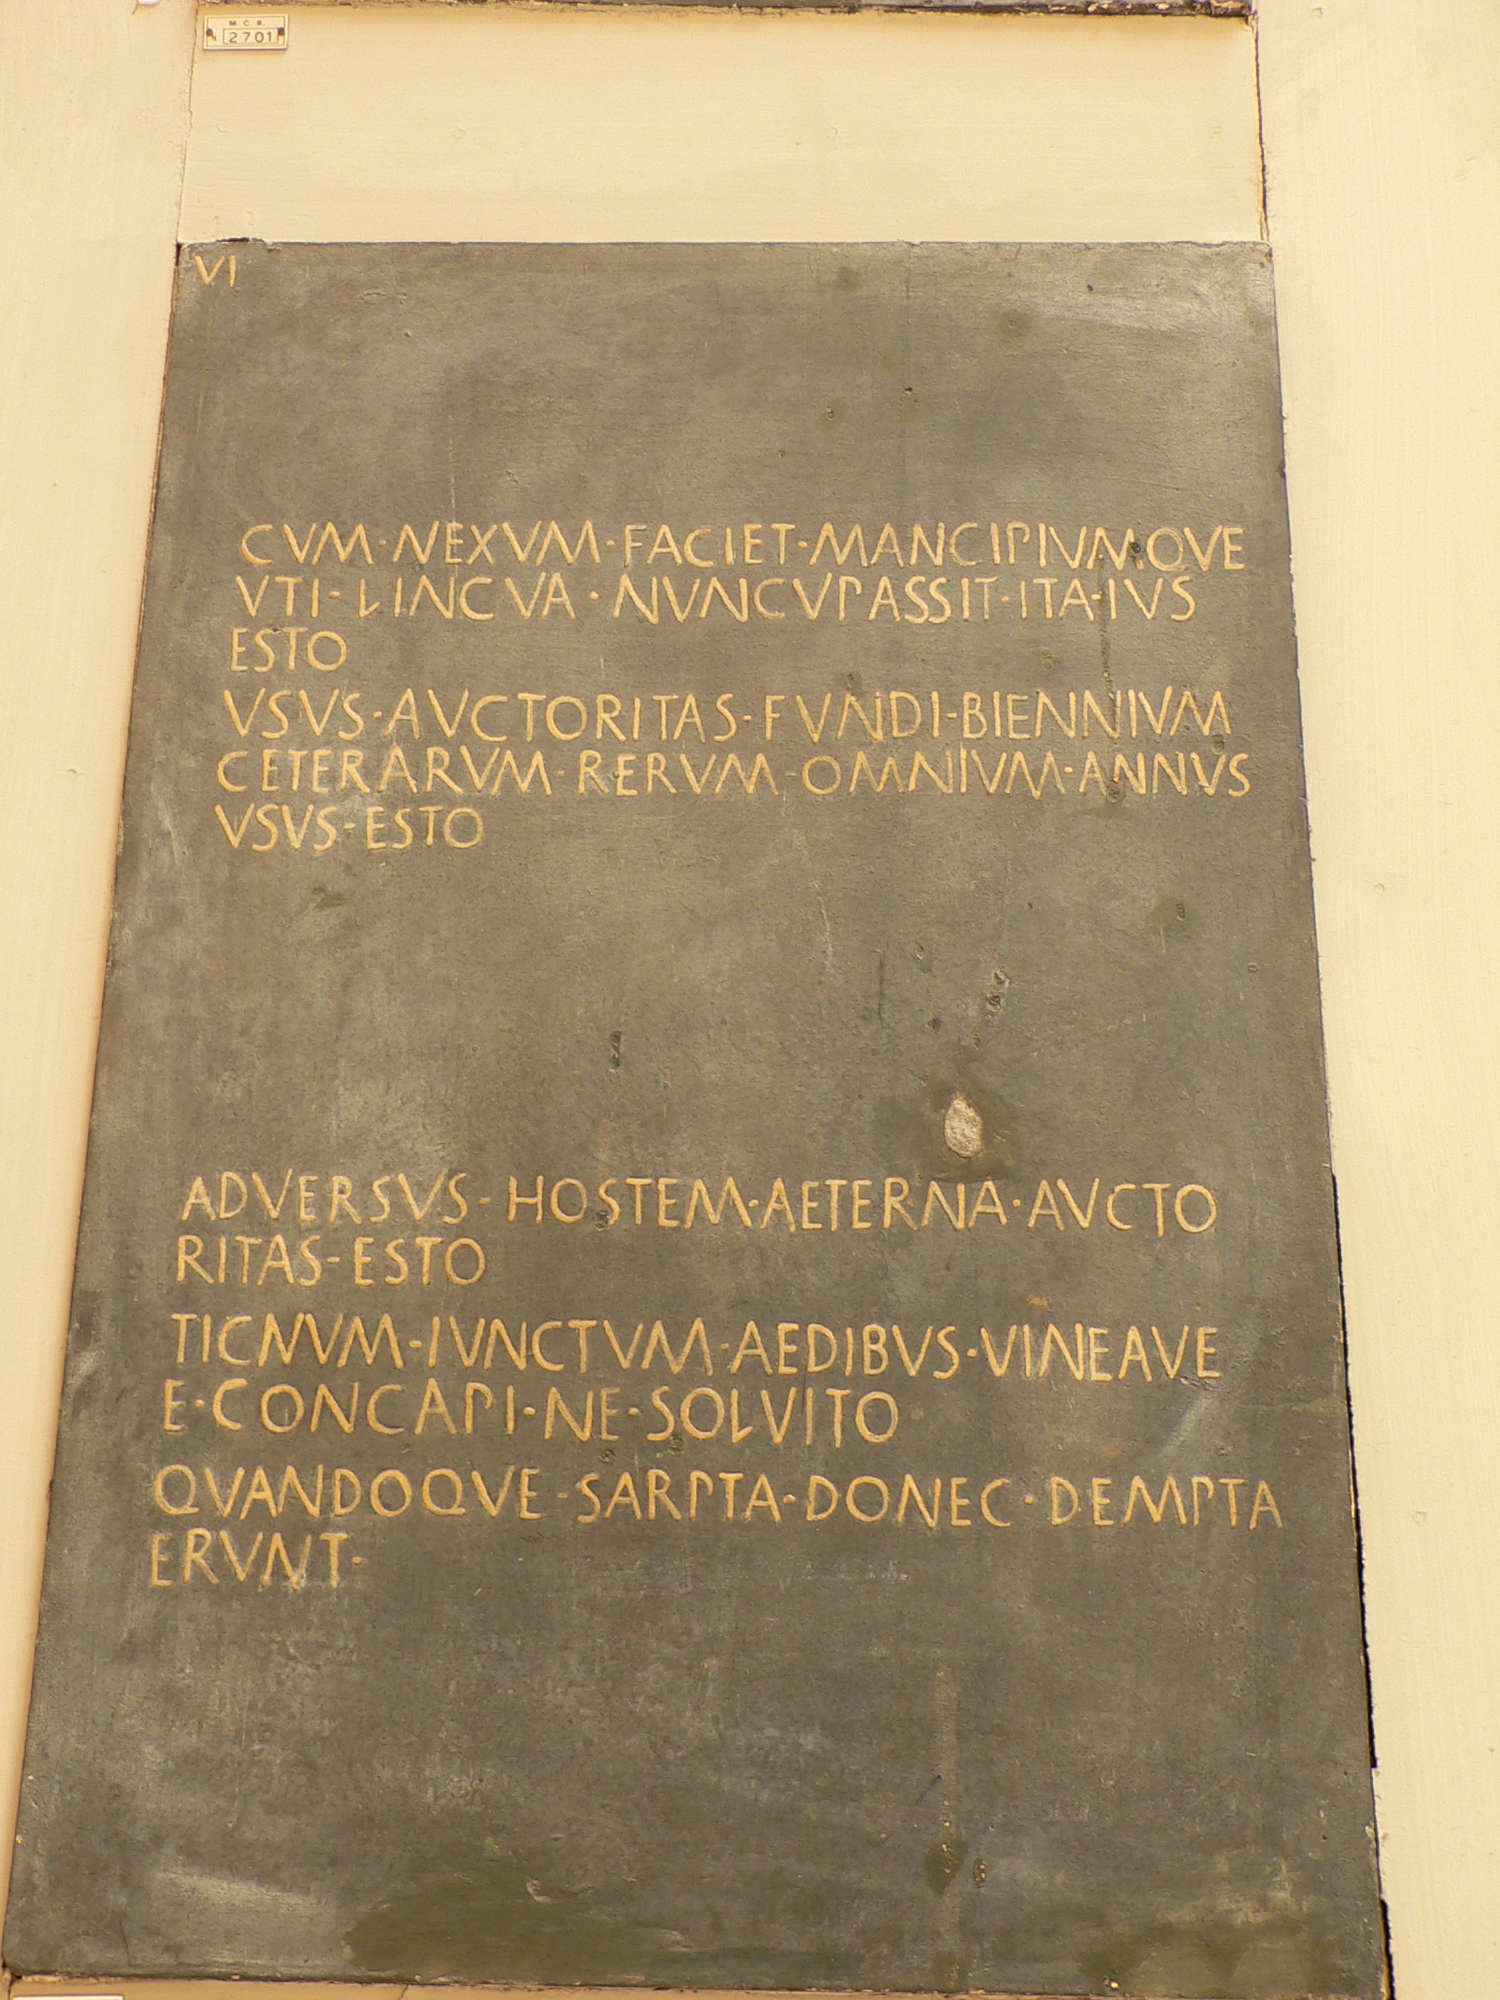 M. C. R.
2701
VI
CVM·NEXVM·FACIET·MANCIPIVMQVE
VTI·LINCVA·NVNCVPASSIT·ITA·IVS
ESTO
VSVS·AVCTORITAS·FVNDI·BIENNIVM
CETERARVM·RERVM·OMNIVM·ANNVS
VSVS·ESTO
ADVERSVS·HOSTEM·AETERNA·AVCTO
RITAS·ESTO
TICNVM·IVNCTVM·AEDIBVS·VINEAVE
E·CONCAPI·NE·SOLVITO
QVANDOQVE·SARPTA·DONEC·DEMPTA
ERVNT·